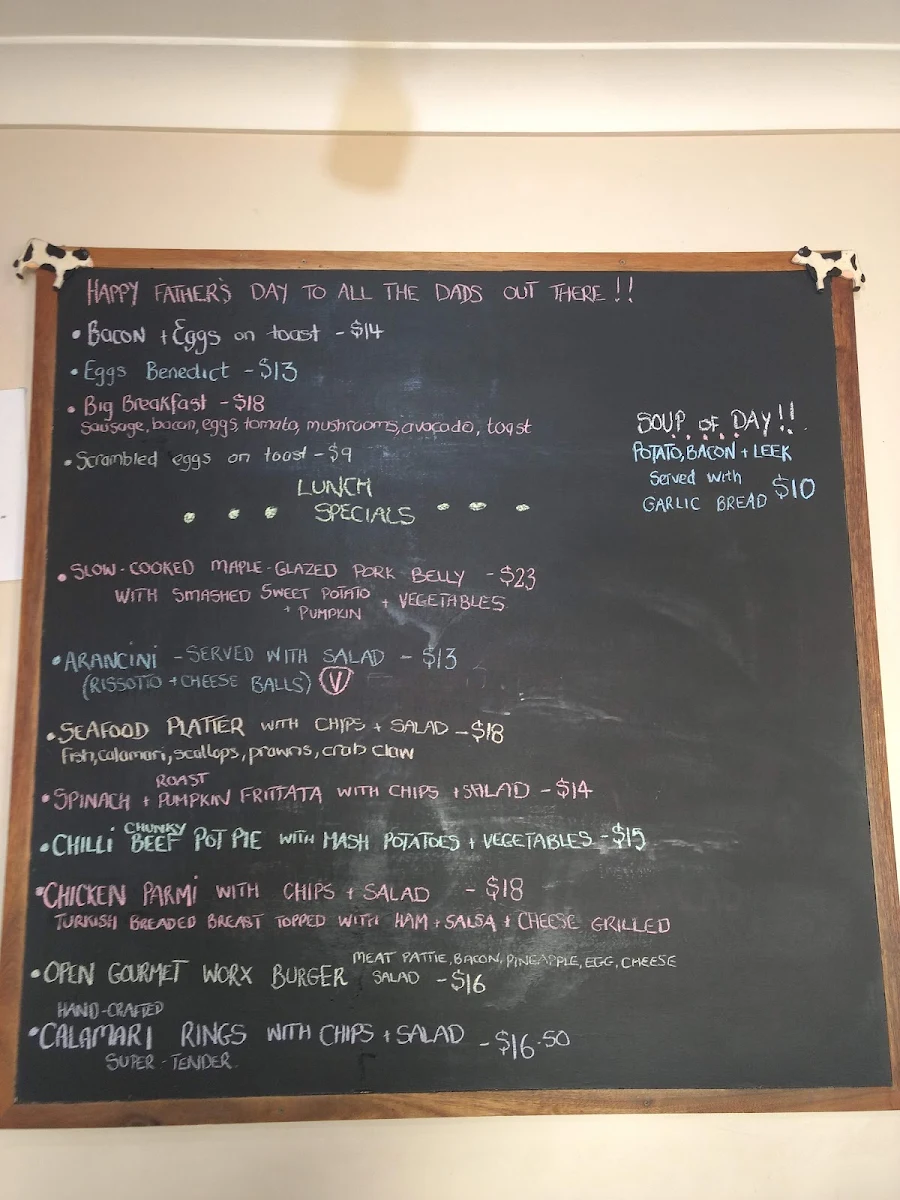 HAPPY FATHER'S DAY TO ALL THE DADS OUT THERE !!
• BACON + Eggs on toast - $14
• Eggs Benedict - $13
• Big Breakfast - $18
Sausage, bacon, eggs, tomato, mushrooms, avocado, toast
• Scrambled eggs on toast - $9
SOUP OF DAY!!
POTATO, BACON + LEEK
Served with
GARLIC BREAD $10
LUNCH
SPECIALS
• SLOW-COOKED MAPLE-GLAZED PORK BELLY - $23
WITH SMASHED SWEET POTATO + VEGETABLES
+ PUMPKIN
• ARANCINI - SERVED WITH SALAD - $13
(RISSOTTO + CHEESE BALLS) V
• SEAFOOD PLATTER WITH CHIPS + SALAD - $18
Fish, calamari, scallops, prawns, crab claw
ROAST
• SPINACH + PUMPKIN FRITTATA WITH CHIPS + SALAD - $14
CHUNKY
• CHILLI BEEF POT PIE WITH MASH POTATOES + VEGETABLES - $15
• CHICKEN PARMI WITH CHIPS + SALAD - $18
TURKISH BREADED BREAST TOPPED WITH HAM + SALSA + CHEESE GRILLED
MEAT PATTIE, BACON, PINEAPPLE, EGG, CHEESE
• OPEN GOURMET WORX BURGER SALAD - $16
HAND-CRAFTED
• CALAMARI RINGS WITH CHIPS + SALAD - $16.50
SUPER-TENDER